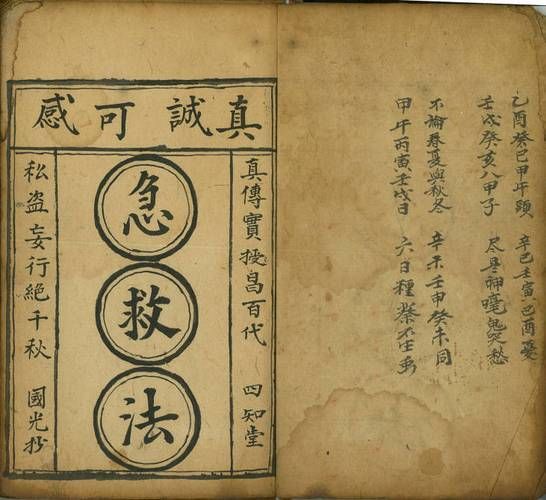 乙酉癸巳甲午 辛巳壬寅己酉憂
壬戌癸亥八甲子 尽是神嚎鬼哭愁
不論春夏與秋冬 辛未壬申癸未同
甲午丙寅壬戌日 六日種
真誠可感
真傳實授昌百代 四知堂
急救法
私盜妄行絕千秋 國光抄